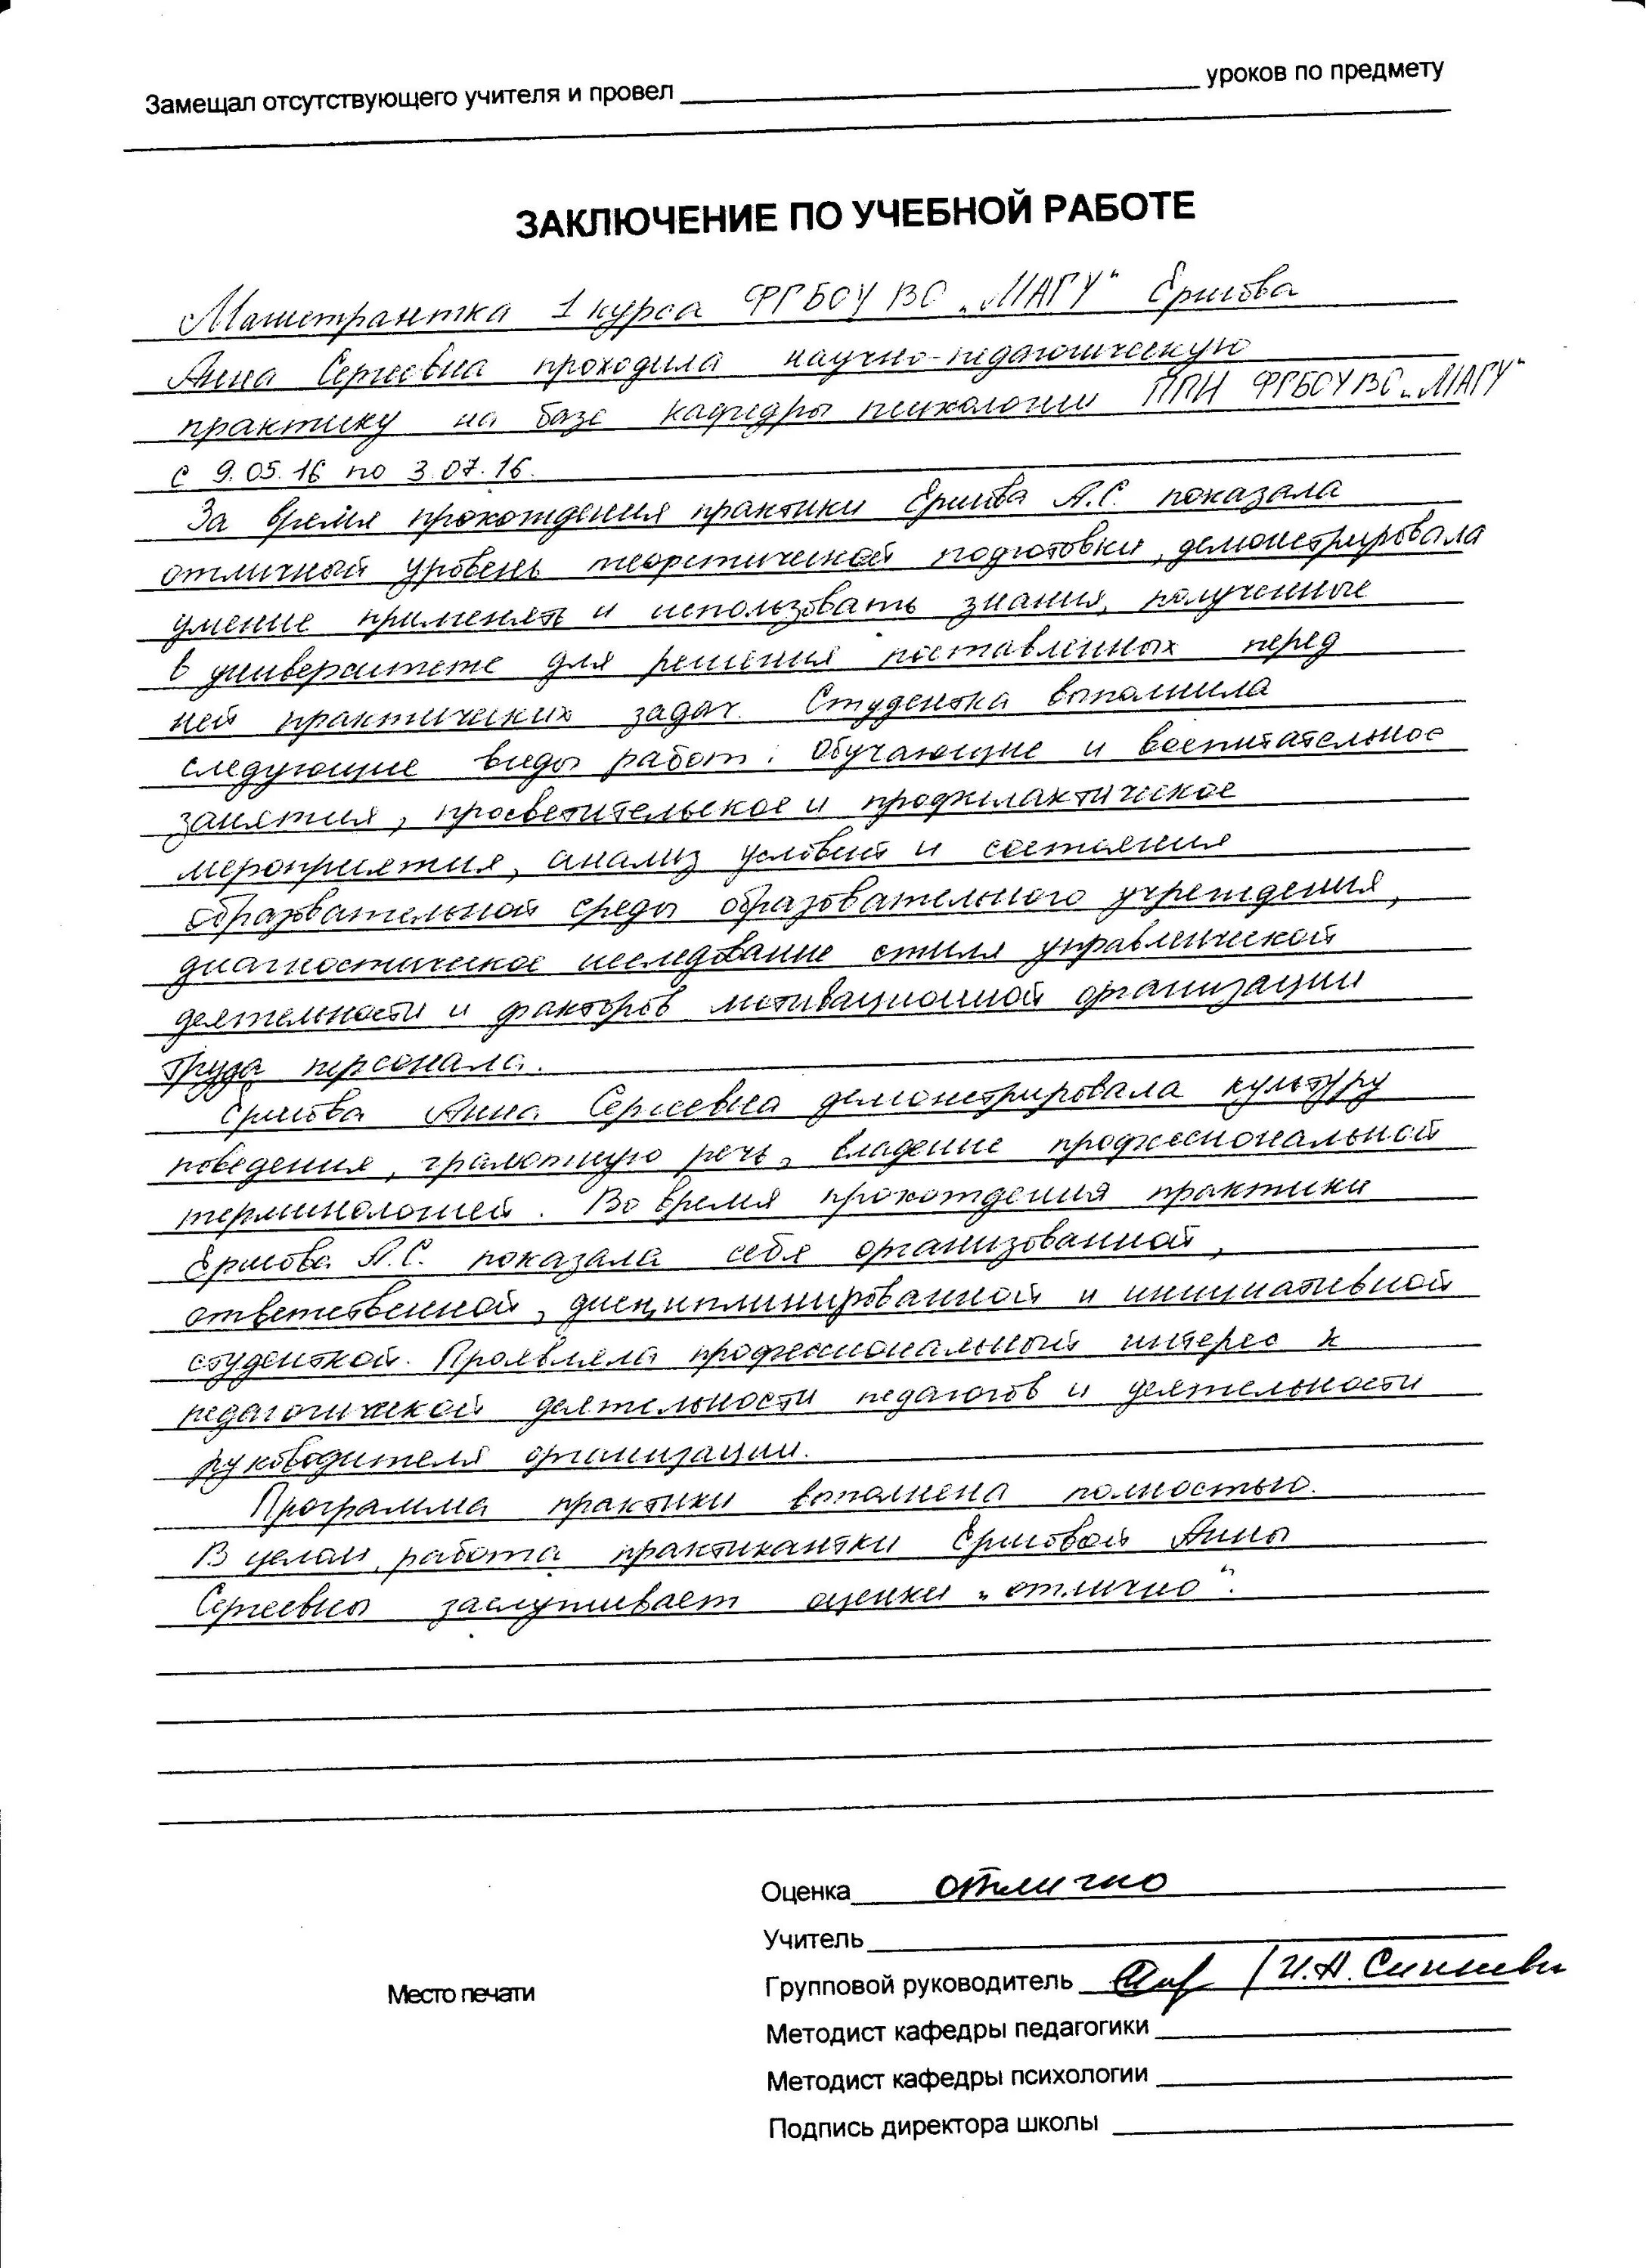 Замещал отсутствующего учителя и провел ______ уроков по предмету
ЗАКЛЮЧЕНИЕ ПО УЧЕБНОЙ РАБОТЕ
Магистрантка 1 курса ФГБОУ ВО „МАГУ“ Ершова
Анна Сергеевна проходила научно-педагогическую
практику на базе кафедры психологии ППИ ФГБОУ ВО „МАГУ“
с 9.05.16 по 3.07.16.
За время прохождения практики Ершова А.С. показала
отличный уровень теоретической подготовки, демонстрировала
умение применять и использовать знания, полученные
в университете для решения поставленных перед
ней практических задач. Студентка выполнила
следующие виды работ: обучающие и воспитательное
занятия, просветительское и профилактическое
мероприятия, анализ условий и состояния
образовательной среды образовательного учреждения,
диагностическое исследование стиля управленческой
деятельности и факторов мотивационной организации
труда персонала.
Ершова Анна Сергеевна демонстрировала культуру
поведения, грамотную речь, владение профессиональной
терминологией. Во время прохождения практики
Ершова А.С. показала себя организованной,
ответственной, дисциплинированной и инициативной
студенткой. Проявляла профессиональный интерес к
педагогической деятельности педагогов и деятельности
руководителя организации.
Программа практики выполнена полностью.
В целом, работа практикантки Ершовой Анны
Сергеевны заслуживает оценки „отлично“.
Оценка отлично
Учитель
Групповой руководитель / И.А. Синкеви
Место печати
Методист кафедры педагогики
Методист кафедры психологии
Подпись директора школы